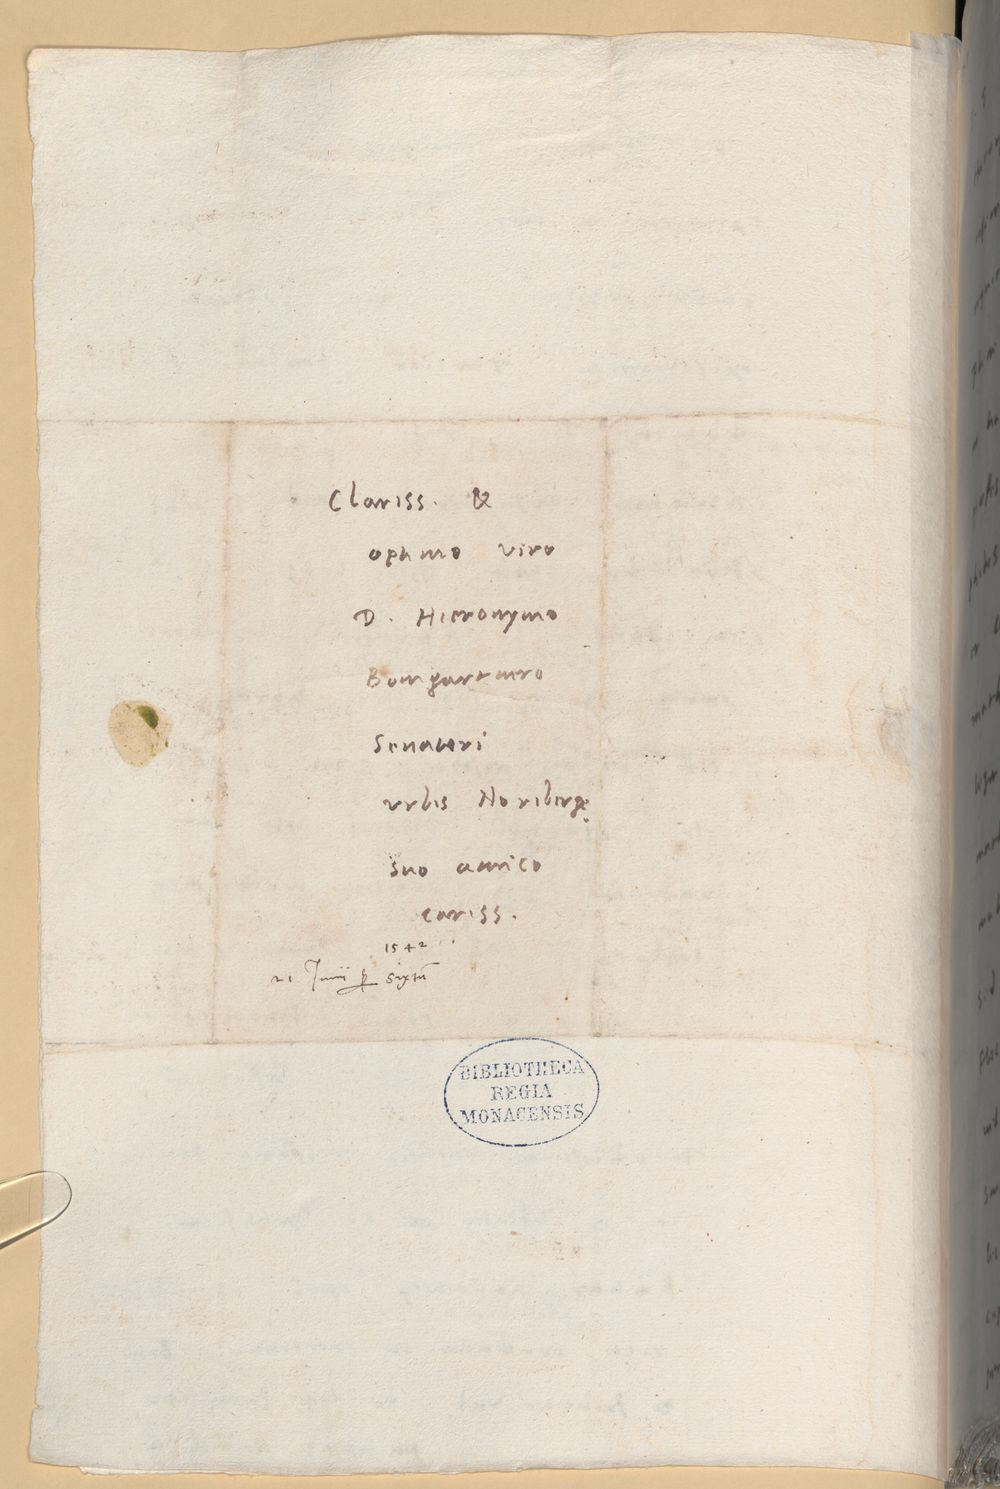 Clariss. &
optimo viro
D. Hieronymo
Bomgartnero
Senatori
urbis Noribergę
suo amico
cariss.
1542
21 Junii p sixtū
BIBLIOTHECA
REGIA
MONACENSIS